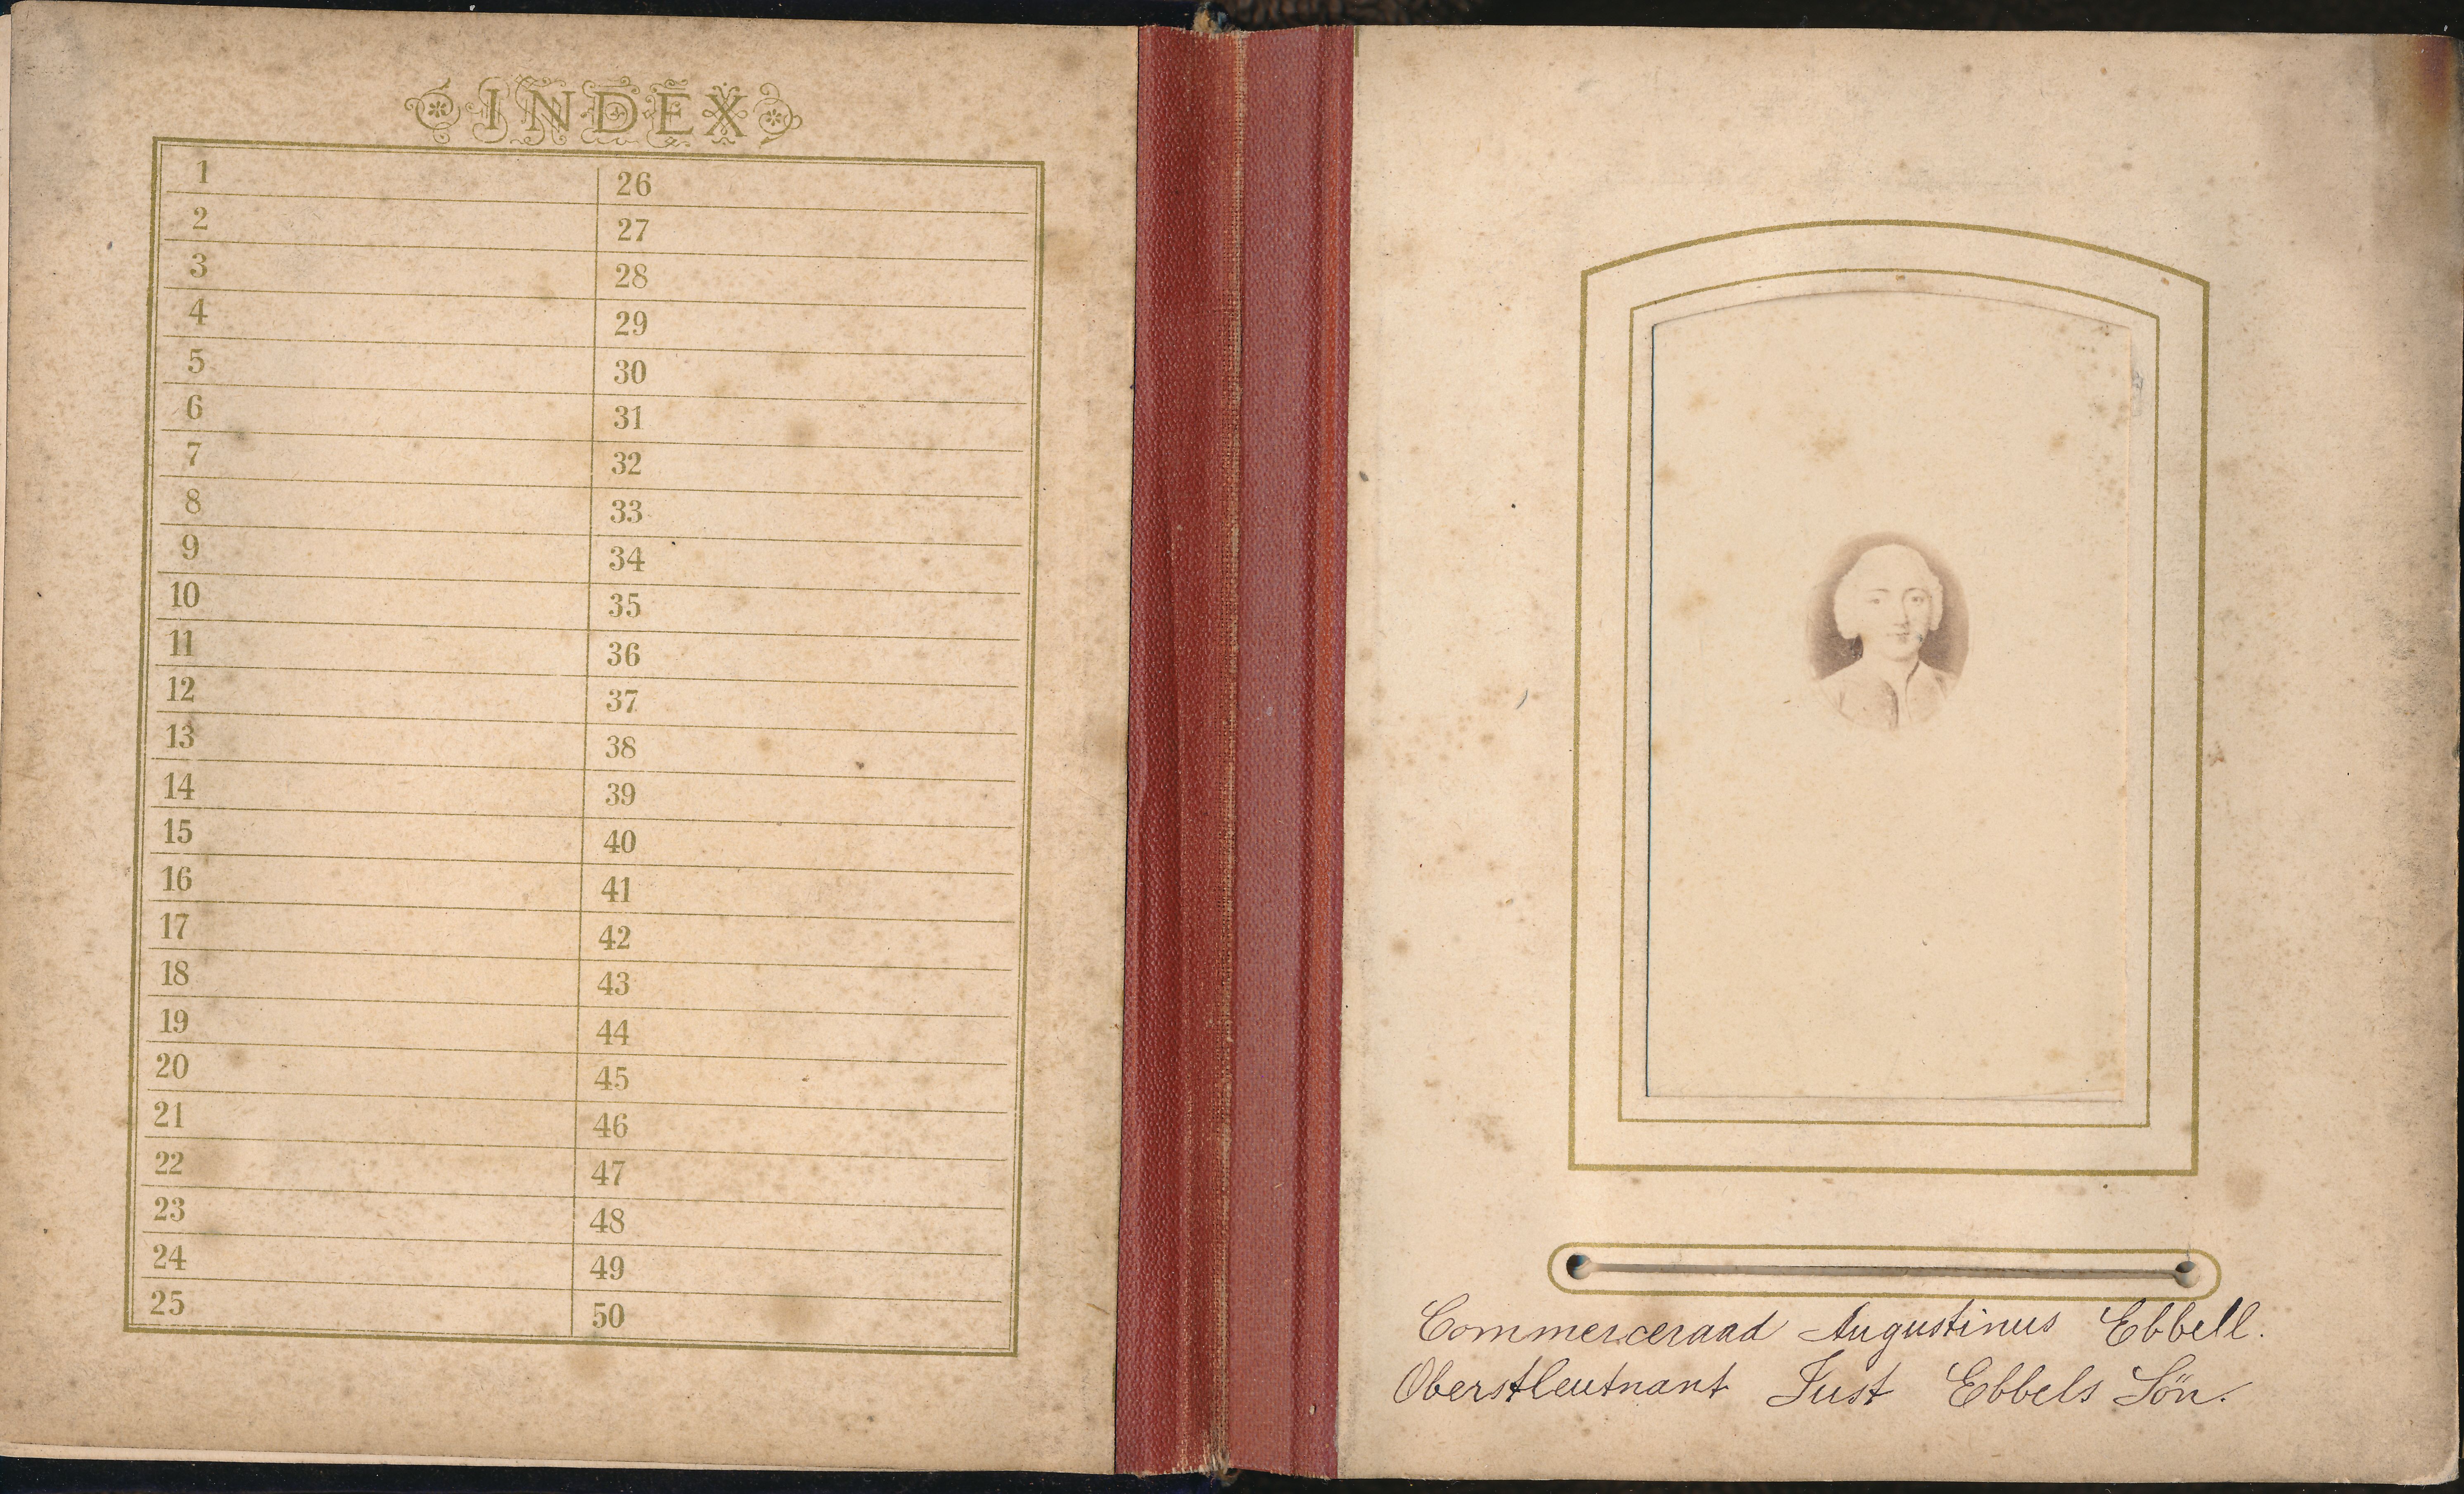 INDEX
1
2
3
4
5
6
7
8
9
10
11
12
13
14
15
16
17
18
19
20
21
22
23
24
25
26
27
28
29
30
31
32
33
34
35
36
37
38
39
40
41
42
43
44
45
46
47
48
49
50
Commerceraad Augustinus Ebbell.
Oberstleutnant Just Ebbels Sön.